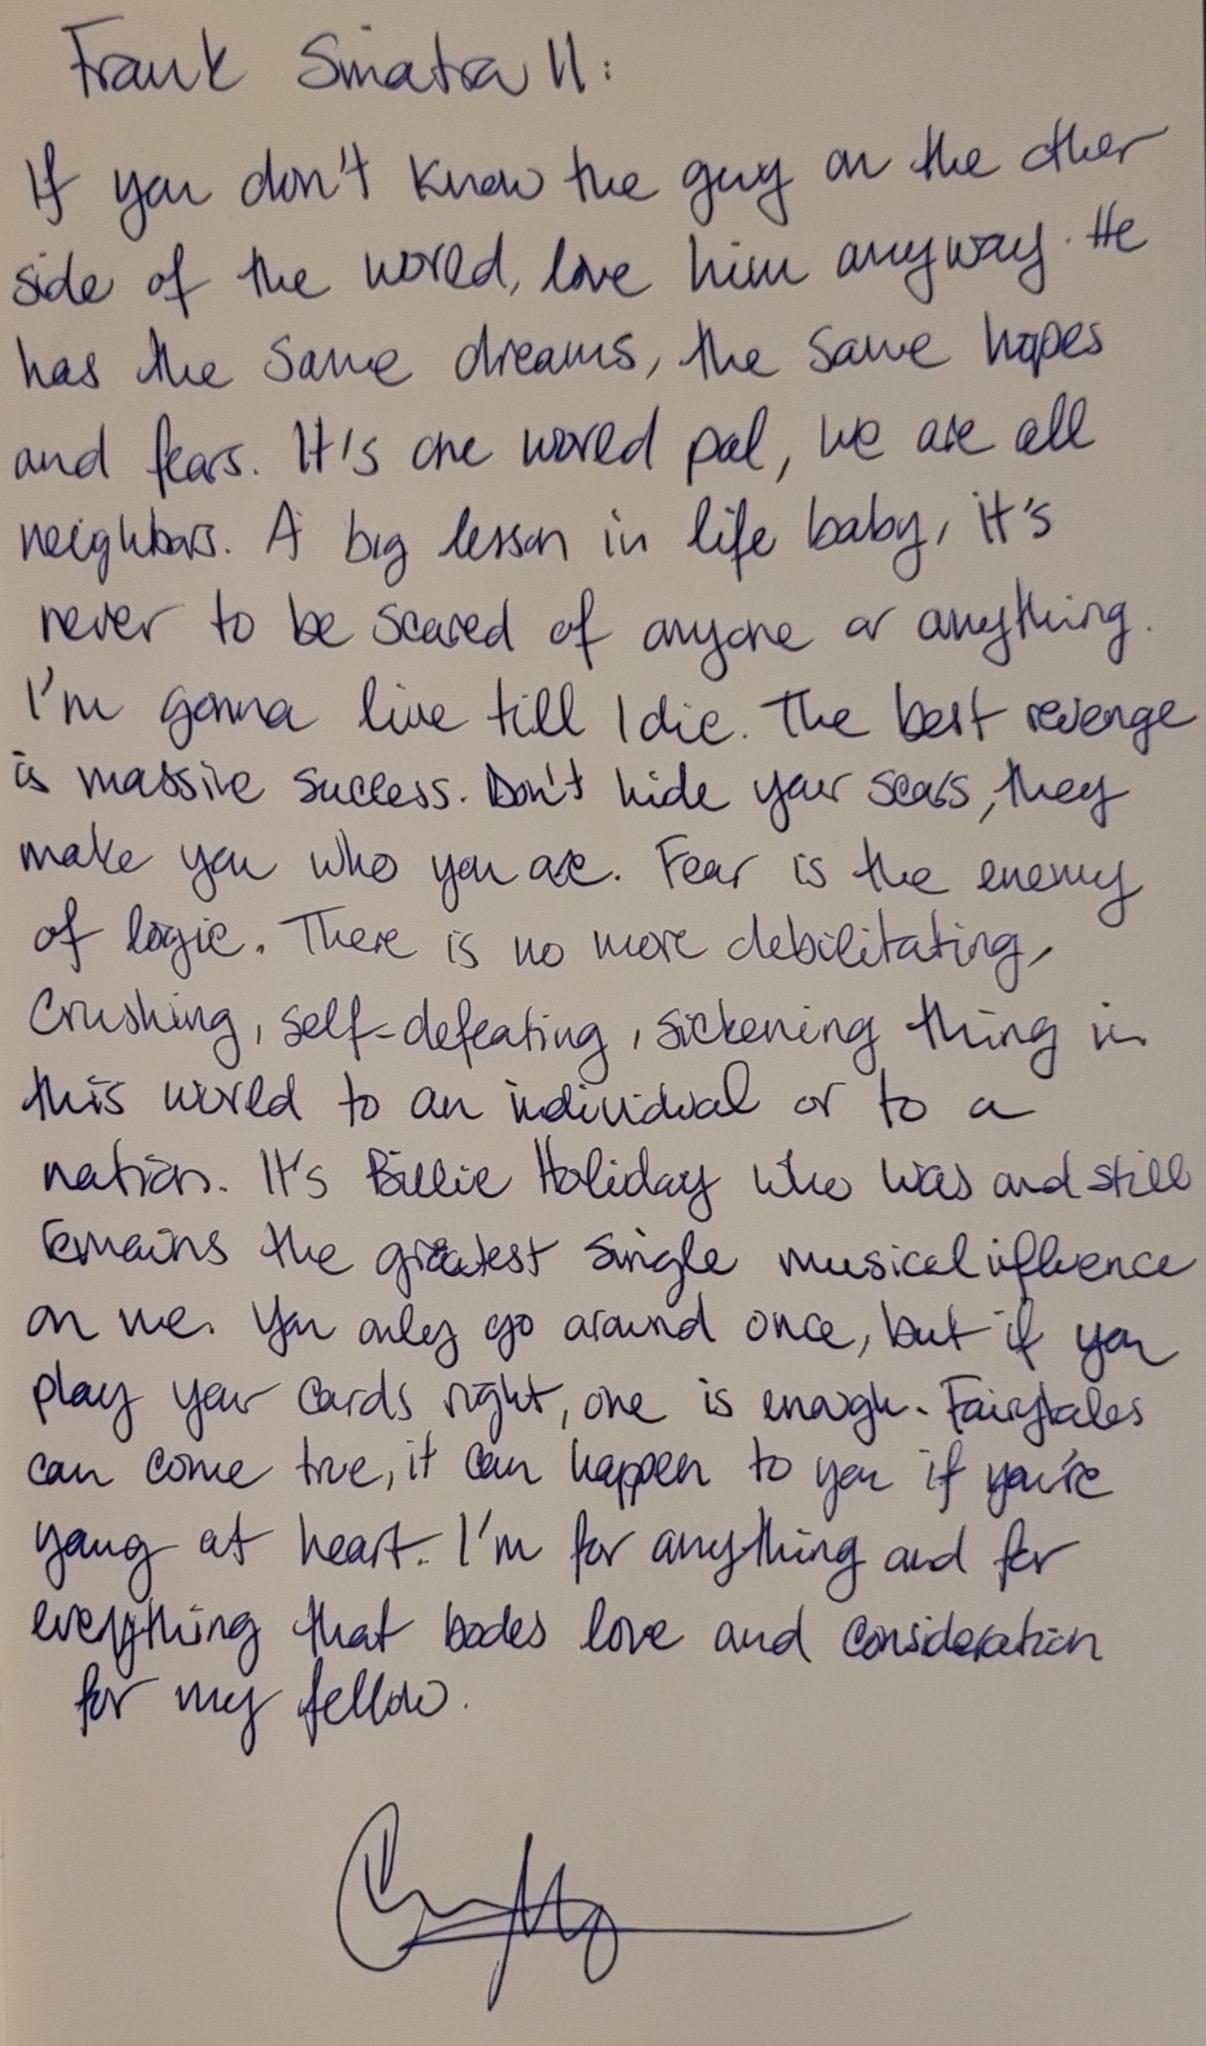 Frank Sinatra II:
If you don't know the guy on the other
side of the world, love him anyway. He
has the same dreams, the same hopes
and fears. It's one world pal, we are all
neighbors. A big lesson in life baby, it's
never to be scared of anyone or anything.
I'm gonna live till I die. The best revenge
is massive success. Don't hide your scars, they
make you who you are. Fear is the enemy
of logic. There is no more debilitating,
Crushing, self-defeating, sickening thing in
this world to an individual or to a
nation. It's Billie Holiday who was and still
remains the greatest single musical ifluence
on me. You only go around once, but if you
play your cards right, one is enough. Fairytales
can come true, it can happen to you if you're
young at heart. I'm for anything and for
everything that bodes love and consideration
for my fellow.